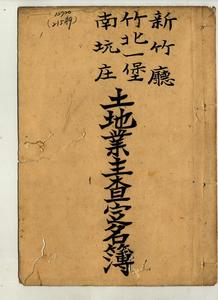 新竹廳
竹北一堡
南坑庄
土地業主查定名簿